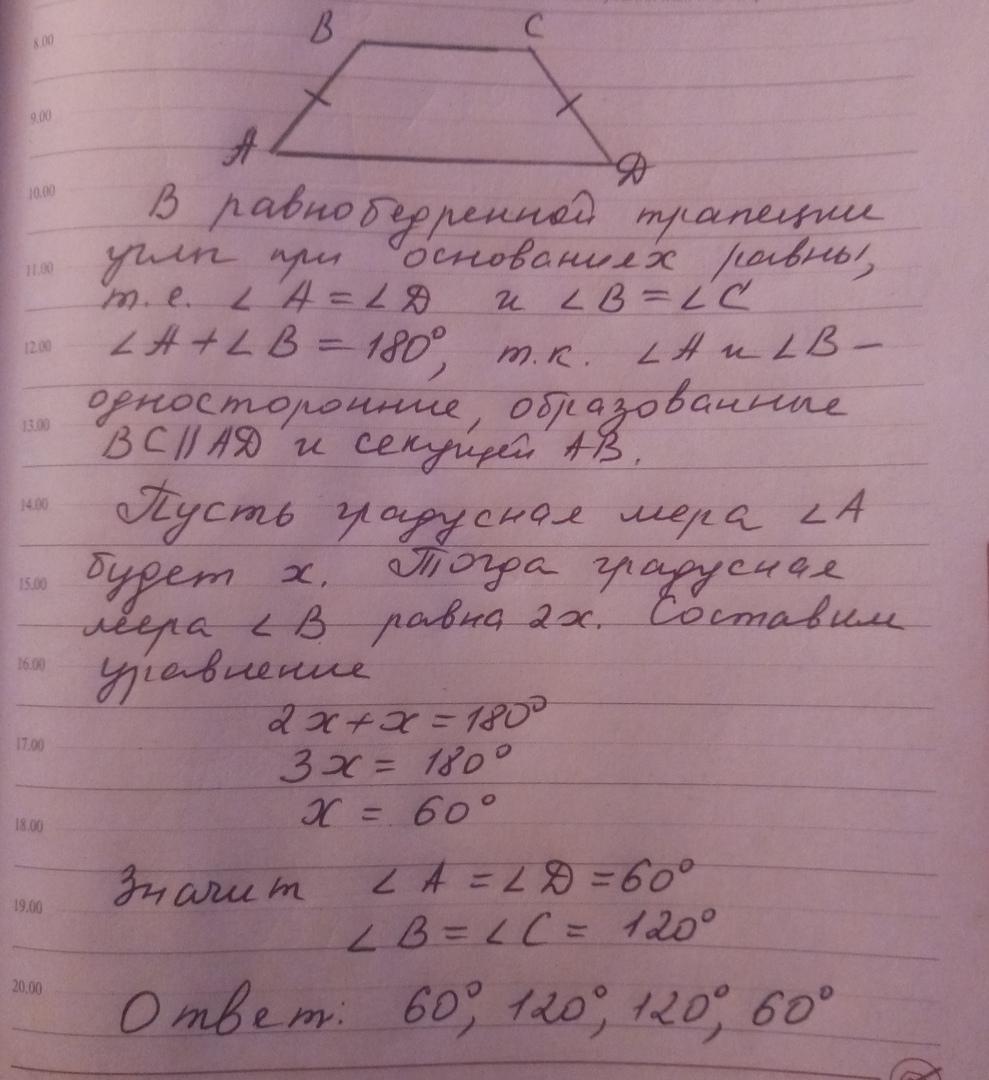 B C
8.00
9.00
A D
10.00
В равнобедренной трапеции
11.00
углы при основаниях равны,
т.е. ∠A = ∠D и ∠B = ∠C
12.00
∠A + ∠B = 180°, т.к. ∠A и ∠B –
13.00
односторонние, образованные
BC || AD и секущей AB.
14.00
Пусть градусная мера ∠A
15.00
будет x. Тогда градусная
мера ∠B равна 2x. Составим
16.00
уравнение
2x + x = 180°
17.00
3x = 180°
18.00
x = 60°
Значит ∠A = ∠D = 60°
19.00
∠B = ∠C = 120°
20.00
Ответ: 60°, 120°, 120°, 60°